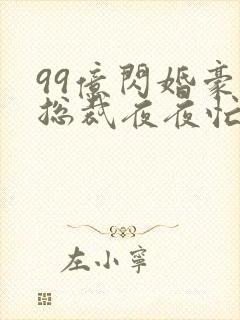 99億閃婚豪
总裁夜夜忙
左小寧